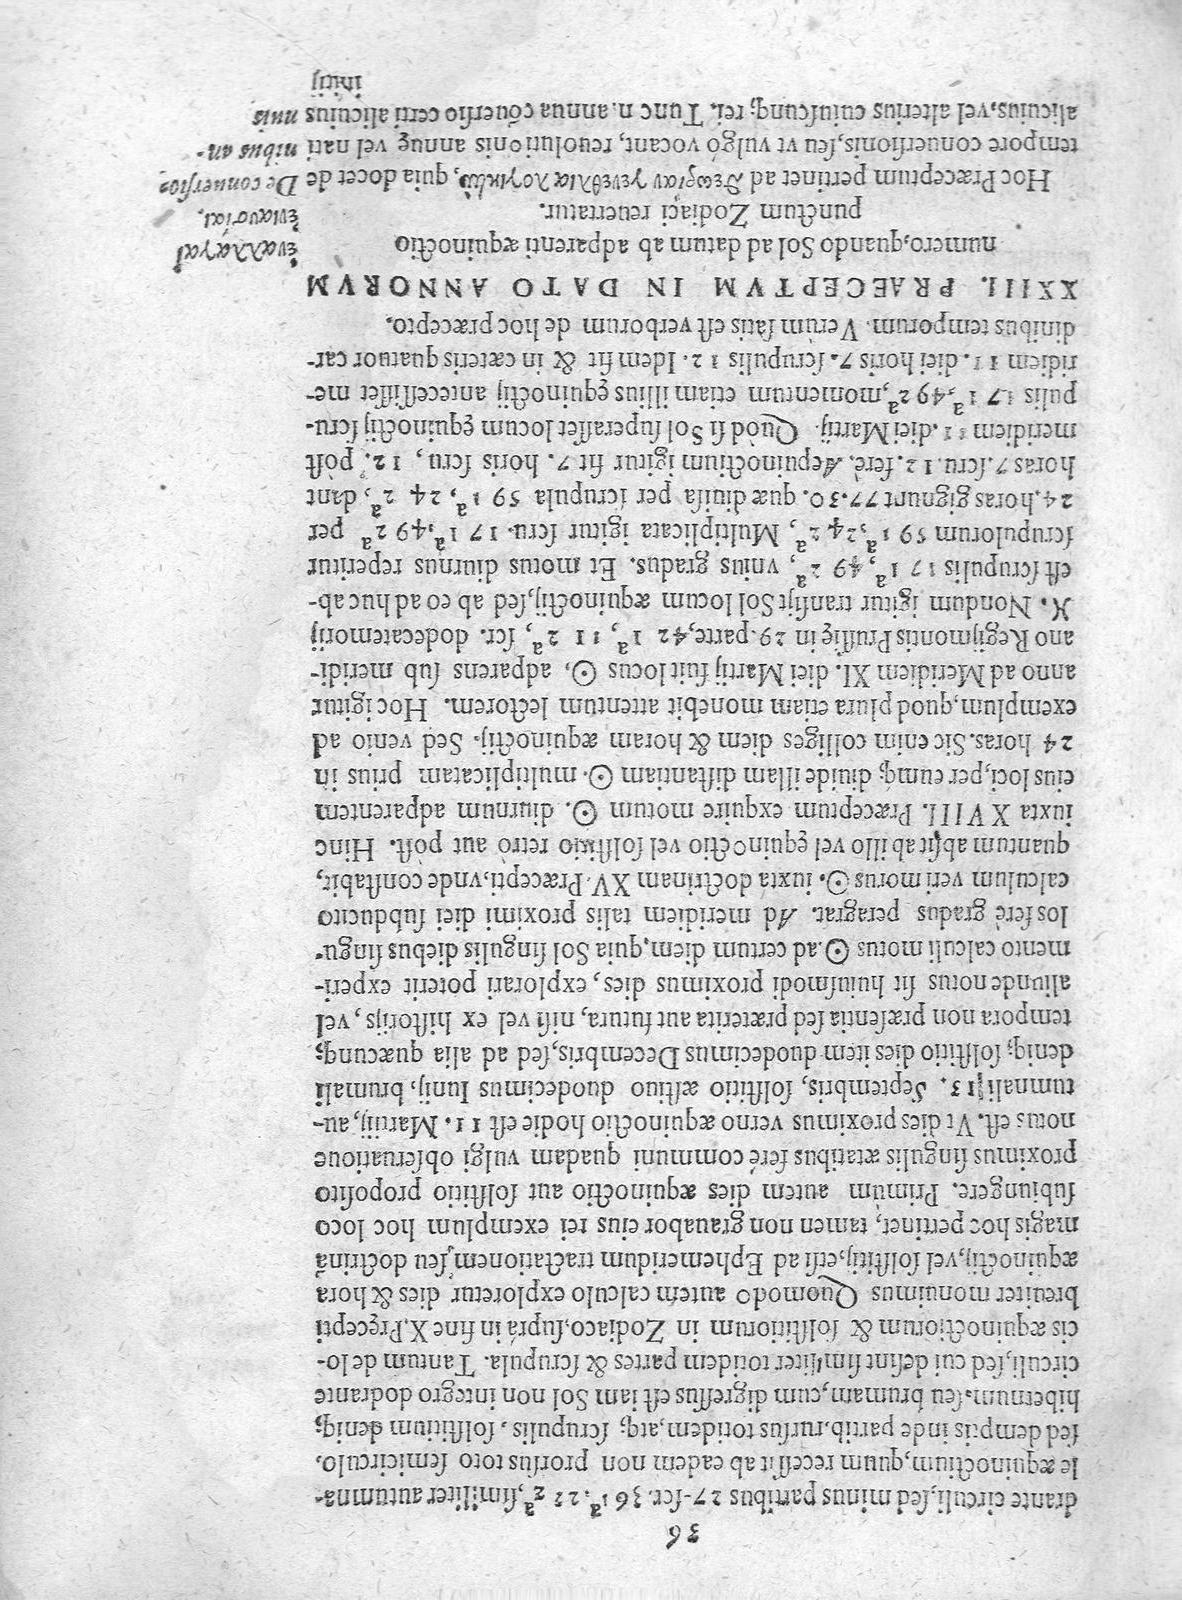 36
drante circuli, sed minus partibus 27. scr. 36 1ᵃ, 22 2ᵃ, similiter autumna-
le æquinoctium, quum recessit ab eadem non prorsus toto semicirculo,
sed demptis inde partib. rursus totidem, atq; scrupulis, solstitium deniq;
hibernum, seu brumam, cum digressus est iam Sol non integro dodrante
circuli, sed cui desint similiter totidem partes & scrupula. Tantum de lo-
cis æquinoctiorum & solstitiorum in Zodiaco, suprà in fine X. Pręcepti
breuiter monuimus Quomodo autem calculo exploretur dies & hora
æquinoctij, vel solstitij, etsi ad Ephemeridum tractationem, seu doctrinā
magis hoc pertinet, tamen non grauabor eius rei exemplum hoc loco
subiungere. Primùm autem dies æquinoctio aut solstitio proposito
proximus singulis ætatibus ferè communi quadam vulgi obseruatione
notus est. Vt dies proximus verno æquinoctio hodie est 11. Martij, au-
tumnali 13. Septembris, solstitio æstiuo duodecimus Iunij, brumali
deniq; solstitio dies item duodecimus Decembris, sed ad alia quæcunq;
tempora non præsentia sed præterita aut futura, nisi vel ex historijs, vel
aliunde notus sit huiusmodi proximus dies, explorari poterit experi-
mento calculi motus ☉. ad certum diem, quia Sol singulis diebus singu-
los ferè gradus peragrat. Ad meridiem talis proximi diei subducito
calculum veri motus ☉. iuxta doctrinam XV. Præcepti, vnde constabit,
quantum absit ab illo vel ęquinoctio vel solstitio retrò aut pòst. Hinc
iuxta XVIII. Præceptum exquire motum ☉. diurnum adparentem
eius loci, per eumq; diuide illam distantiam ☉. multiplicatam prius in
24 horas. Sic enim colliges diem & horam æquinoctij. Sed venio ad
exemplum, quod plura etiam monebit attentum lectorem. Hoc igitur
anno ad Meridiem XI. diei Martij fuit locus ☉, adparens sub meridi-
ano Regijmontis Prussię in 29. parte, 42 1ᵃ, 11 2ᵃ, scr. dodecatemorij
♓. Nondum igitur transijt Sol locum æquinoctij, sed ab eo ad huc ab-
est scrupulis 17 1ᵃ, 49 2ᵃ, vnius gradus. Et motus diurnus reperitur
scrupulorum 59 1ᵃ, 24 2ᵃ, Multiplicata igitur scru. 17 1ᵃ, 49 2ᵃ per
24. horas gignunt 77. 30. quæ diuisa per scrupula 59 1ᵃ, 24 2ᵃ, dant
horas 7. scru. 12. ferè. Aequinoctium igitur fit 7. horis scru, 12. pòst
meridiem 11. diei Martij. Quòd si Sol superasset locum ęquinoctij scru-
pulis 17 1ᵃ, 49 2ᵃ, momentum etiam illius ęquinoctij antecessisset me-
ridiem 11. diei horis 7. scrupulis 12. Idem fit & in cæteris quatuor car-
dinibus temporum. Verùm satis est verborum de hoc præcepto.
XXIII. PRAECEPTVM IN DATO ANNORVM
numero, quando Sol ad datum ab adparenti æquinoctio
punctum Zodiaci reuertatur.
ἐναλλάγαὶ
ἐνιαυσίαι.
Hoc Præceptum pertinet ad θεωρίαν γενεθλιαλογικὼ, quia docet de
tempore conuersionis, seu vt vulgò vocant, reuolutionis annuę vel nati
alicuius, vel alterius cuiuscunq; rei. Tunc n. annua cōuersio certi alicuius
De conuersio-
nibus an-
nuis
initij